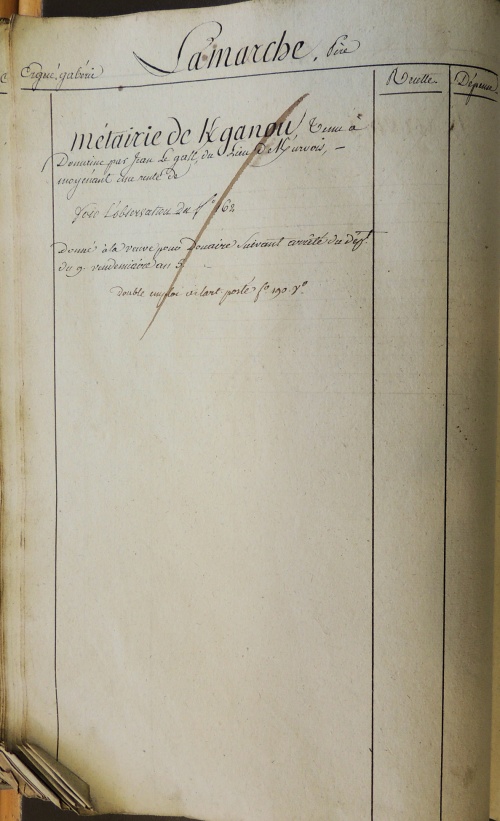 Lamarche, Père
Ergué-gabéric
Recette. Dépense.
métairie de Kganou, Tenu à
Domaine par Jean Le gall, du Lieu De
moyenant une rente de
Voir L'observation Du fo 162
Donné à la veuve pour Douaire Suivant arrêté du dépt.
du 9. vendemiaire an 5.
double emploi article porté fo 190 Vo